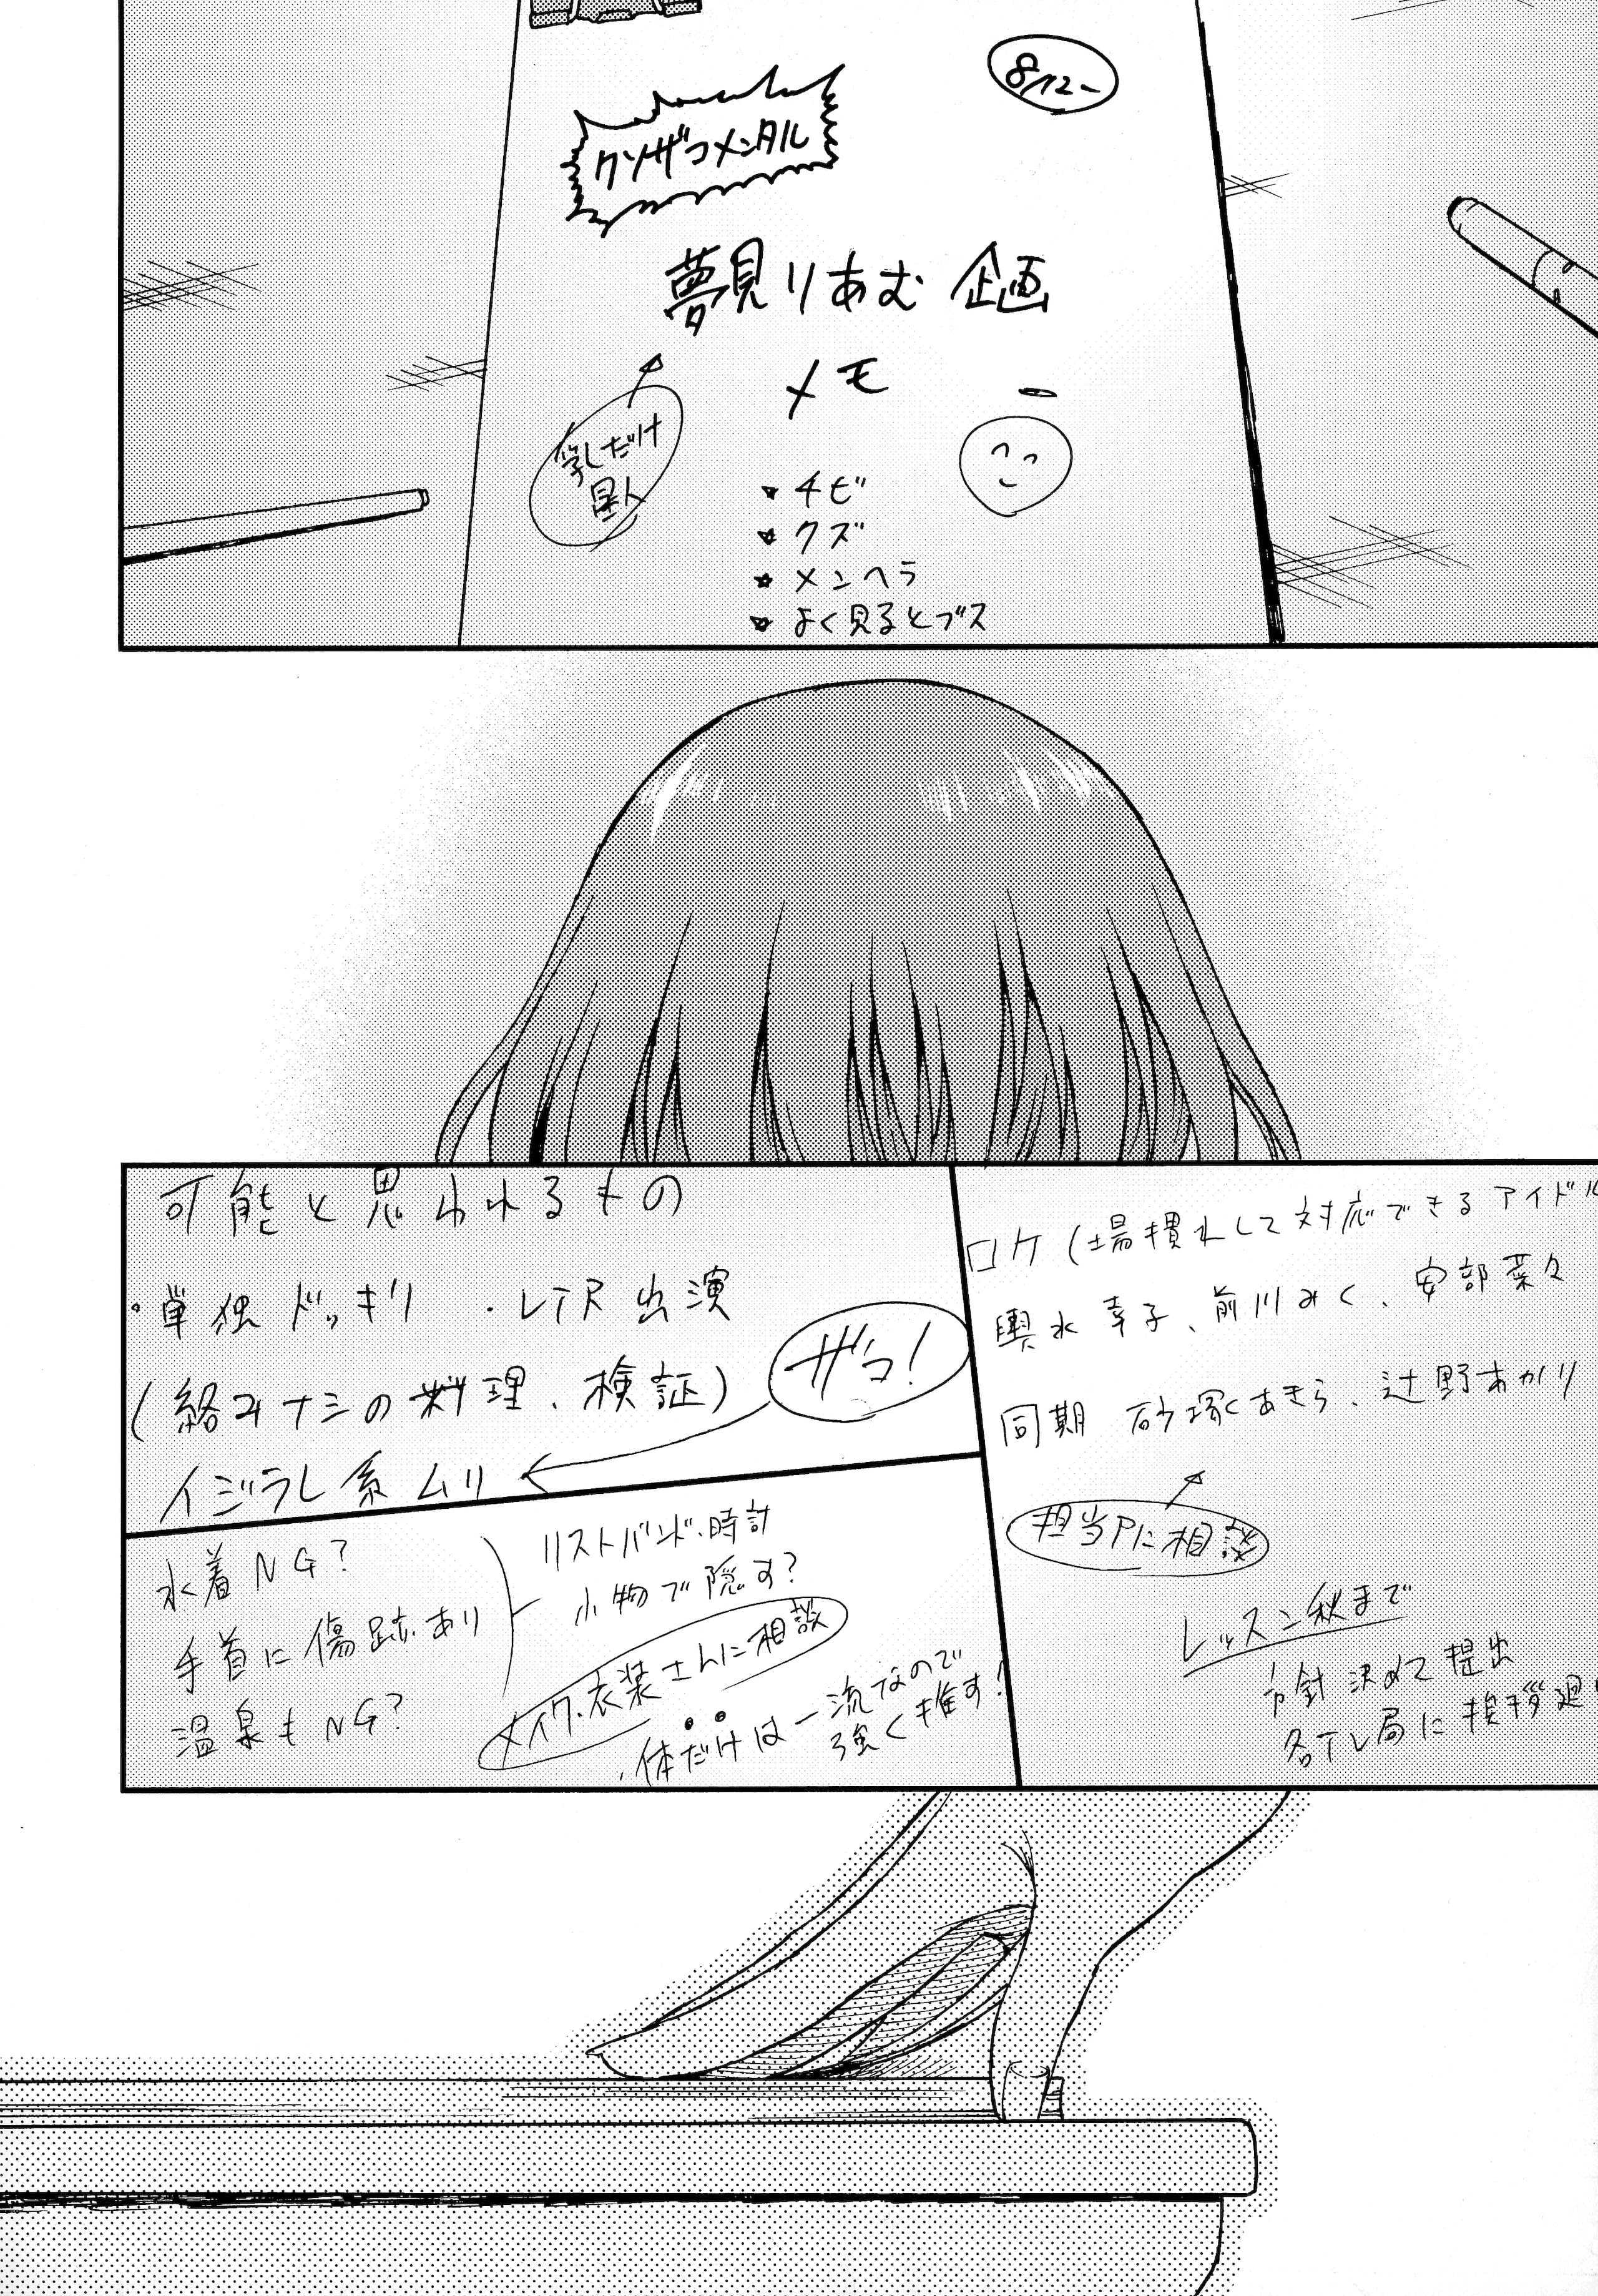 8/12~
クソザコメンタル
夢見りあむ 企画
メモ
乳だけ
星人
★チビ
★クズ
★メンヘラ
★よく見るとブス
ロケ(場慣れして対応できるアイドル
輿水 幸子、前川みく、安部菜々
同期 砂塚あきら、辻野あかり
担当Pに相談
レッスン秋まで
方針決めて提出
各テレ局に挨拶廻り
可能と思われるもの
・単独ドッキリ ・VTR出演
(絡みナシの料理、検証)
ザコ!
イジラレ系ムリ
水着NG?
手首に傷跡あり
温泉もNG?
リストバンド、時計
小物で隠す?
メイク・衣装さんに相談
・体だけは一流なので
強く推す!